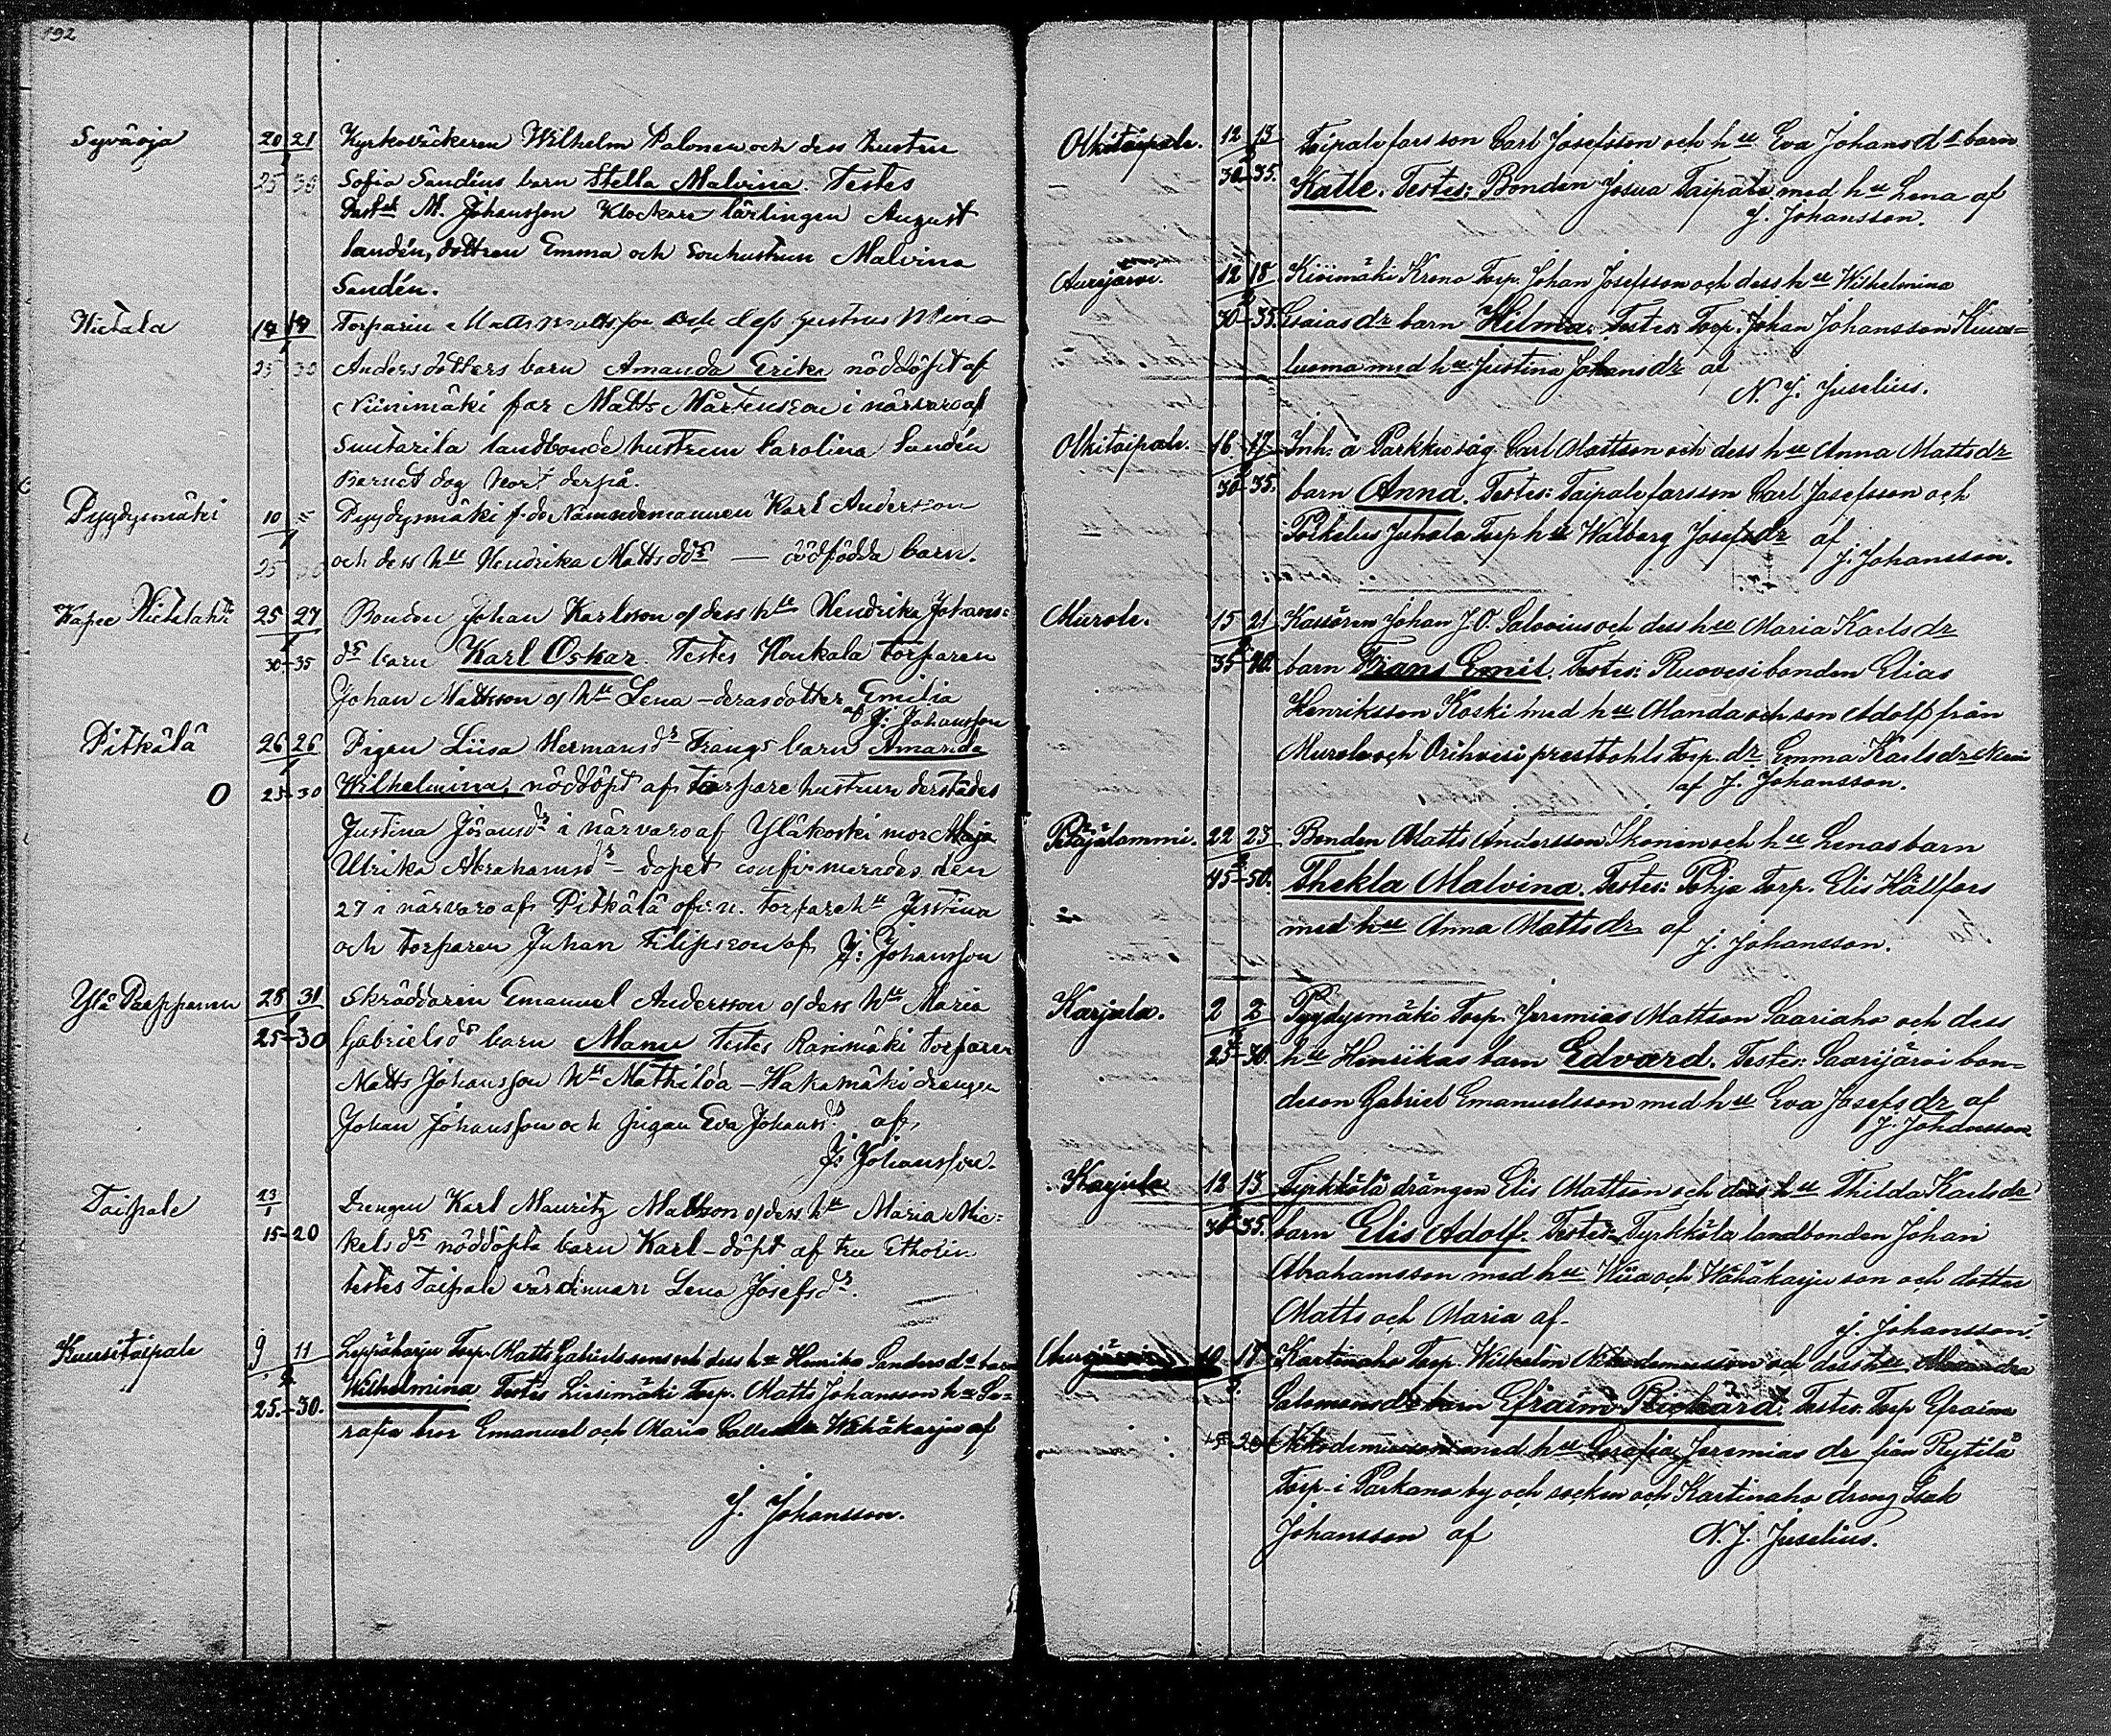 192
Syväoja 20 21 Kyrkoväckeren Wilhelm Palonen och dess hustru
1
25 30 Sofia Sandéns barn Stella Malvina. Testes
M. Johansson Klockare lärlingen August
Sandén, dottren Emma och Sonhustrun Malvina
Sandén.
Hietala 19 19 Torparen Matts Mattsson och dess hustrus Mina
1
25 30 Andersdotters barn Amanda Erika nöddöpt af
Niinimäki far Matts Mårtensson i närvaro af
Suutarila landbonde hustrun Carolina Sandén
Barnet dog kort derpå.
Pyydysmäki 10 Pyydysmäki f.do Nämndemannen Karl Andersson
1
25 och dess hu Hendrika Mattsdrs — dödfödda barn.
Kapee Hietalahti 25 27 Bonden Johan Karlsson o/ dess hu Hendrika Johans=
1
30-35 drs barn Karl Oskar. Testes Koukala torparen
Johan Mattsson o/ hu Lena - deras dotter Emilia
af J: Johansson
Pitkälä 26 26 Pigan Liisa Hermansdr Frangs barn Amanda
1
O 25-30 Wilhelmina, nöddöpt af torpare hustrun derstädes
Justina Jöransdr i närvaro af Yläkoski mor Maja
Ulrika Abrahamsdr - dopet confirmerades den
27 i närvaro af Pitkälä ofv:n. torpareh:u Justina
och torparen Juhan Filipsson af J: Johansson
Ylä Paappanen 28 31 Skräddaren Emanuel Andersson o/ dess hu Maria
1
25-30 Gabrielsdrs barn Manu Testes Ranimäki torparen
Matts Johansson hu Mathilda - Hakamäki drengen
Johan Johansson och pigan Eva Johansdr. af
J: Johansson.
Taipale 23
1 Drengen Karl Mauritz Mattsson o/ dess hu Maria Mic=
15-20 kelsdrs nöddöpta barn Karl - döpt af fru Etholin
testes Taipale värdinnan Lena Josefsdr.
Kuusitaipale 9 11 Leppäharju Torp. Matts Gabrielssons och dess hu Henrika Sandersdr barn
2
25.-30. Wilhelmina Testes Liisimäki Torp. Matts Johansson hu Se=
rafia bror Emanuel och Maria Wähäkarju af
J. Johansson.
Olkitaipale. 12 13 Taipale farsson Carl Josefsson och hu Eva Johansdrs barn
2
30-35. Kalle. Testes: Bonden Josua Taipale med hu Lena af
J. Johansson.
Aurejärvi. 12 18 Kivimäki Krono Torp. Johan Josefsson och dess hu Wilhelmina
2
30-35. Esaiasdr barn Hilma. Testes: Torp. Johan Johansson Kuus=
luoma med hu Justina Johansdr af
N. J. Juselius.
Olkitaipale. 16 17 Inh. å Parkku såg Carl Mattson och dess hu Anna Mattsdr
2
30-35. barn Anna. Testes: Taipale farsson Carl Josefsson och
Juhola Torp hu Walborg Josefsdr af
J. Johansson.
Murole. 15 21 Kassören Johan J.O. Salovius och dess hu Maria Karlsdr
2
35-40. barn Frans Emil. Testes: Ruovesi bonden Elias
Henriksson Koski med hu Manda och son Adolf från
Murole och Orihvesi prestbohls Torp. dr Emma Karlsdr
af J. Johansson.
Petäjälammi. 22 23 Bonden Matts Andersson Ikonen och hu Lenas barn
2
45-50. Thekla Malvina. Testes: Pohja Torp. Elis Hällfors
med hu Anna Mattsdr af
J. Johansson.
Karjula. 2 2 Pyydysmäki Torp. Jeremias Mattson Saariaho och dess
25-30. hu Henrikas barn Edvard. Testes: Saarijärvi bon=
deson Gabriel Emanuelsson med hu Eva Josefsdr af
J. Johansson
Karjula 12 13 Tyrkkölä drängen Elis Mattson och dess hu Thilda Karlsdr
30-35. barn Elis Adolf. Testes: Tyrkkölä landbonden Johan
Abrahamsson med hu Wiia och Wähäkarju son och dotter
Matts och Maria af
J. Johansson.
Aurejärvi 10 17 Kartinaho Torp. Wilhelm Nikodemusson och dess hu Alexandra
Salomonsdr barn Efraim Rickard. Testes: Torp Efraim
15-20 Nikodemusson med hu Serafia Jeremias dr från Rejtilä
Torp i Parkano by och socken och Kartinaho dreng Isak
Johansson af N. J. Juselius.